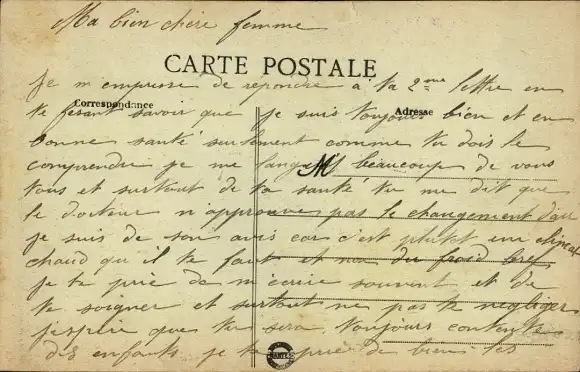 Ma bien chère femme
CARTE POSTALE
Je m'empresse de repondre à ta 2me lettre en
Correspondance
Adresse
te fesant savoir que je suis toujours bien et en
bonne santé seulement comme tu dois le
comprendre je me langui beaucoup de vous
M
tous et surtout de ta santé tu me dit que
le docteur n'approuve pas le changement d'air
je suis de son avis car c'est plutot un climat
chaud qu'il te faut et non du froid bref
je te prie de m'écrire souvent et de
te soigner et surtout ne pas te negliger
j'espère que tu sera toujours contente
des enfants je te prie de bien les